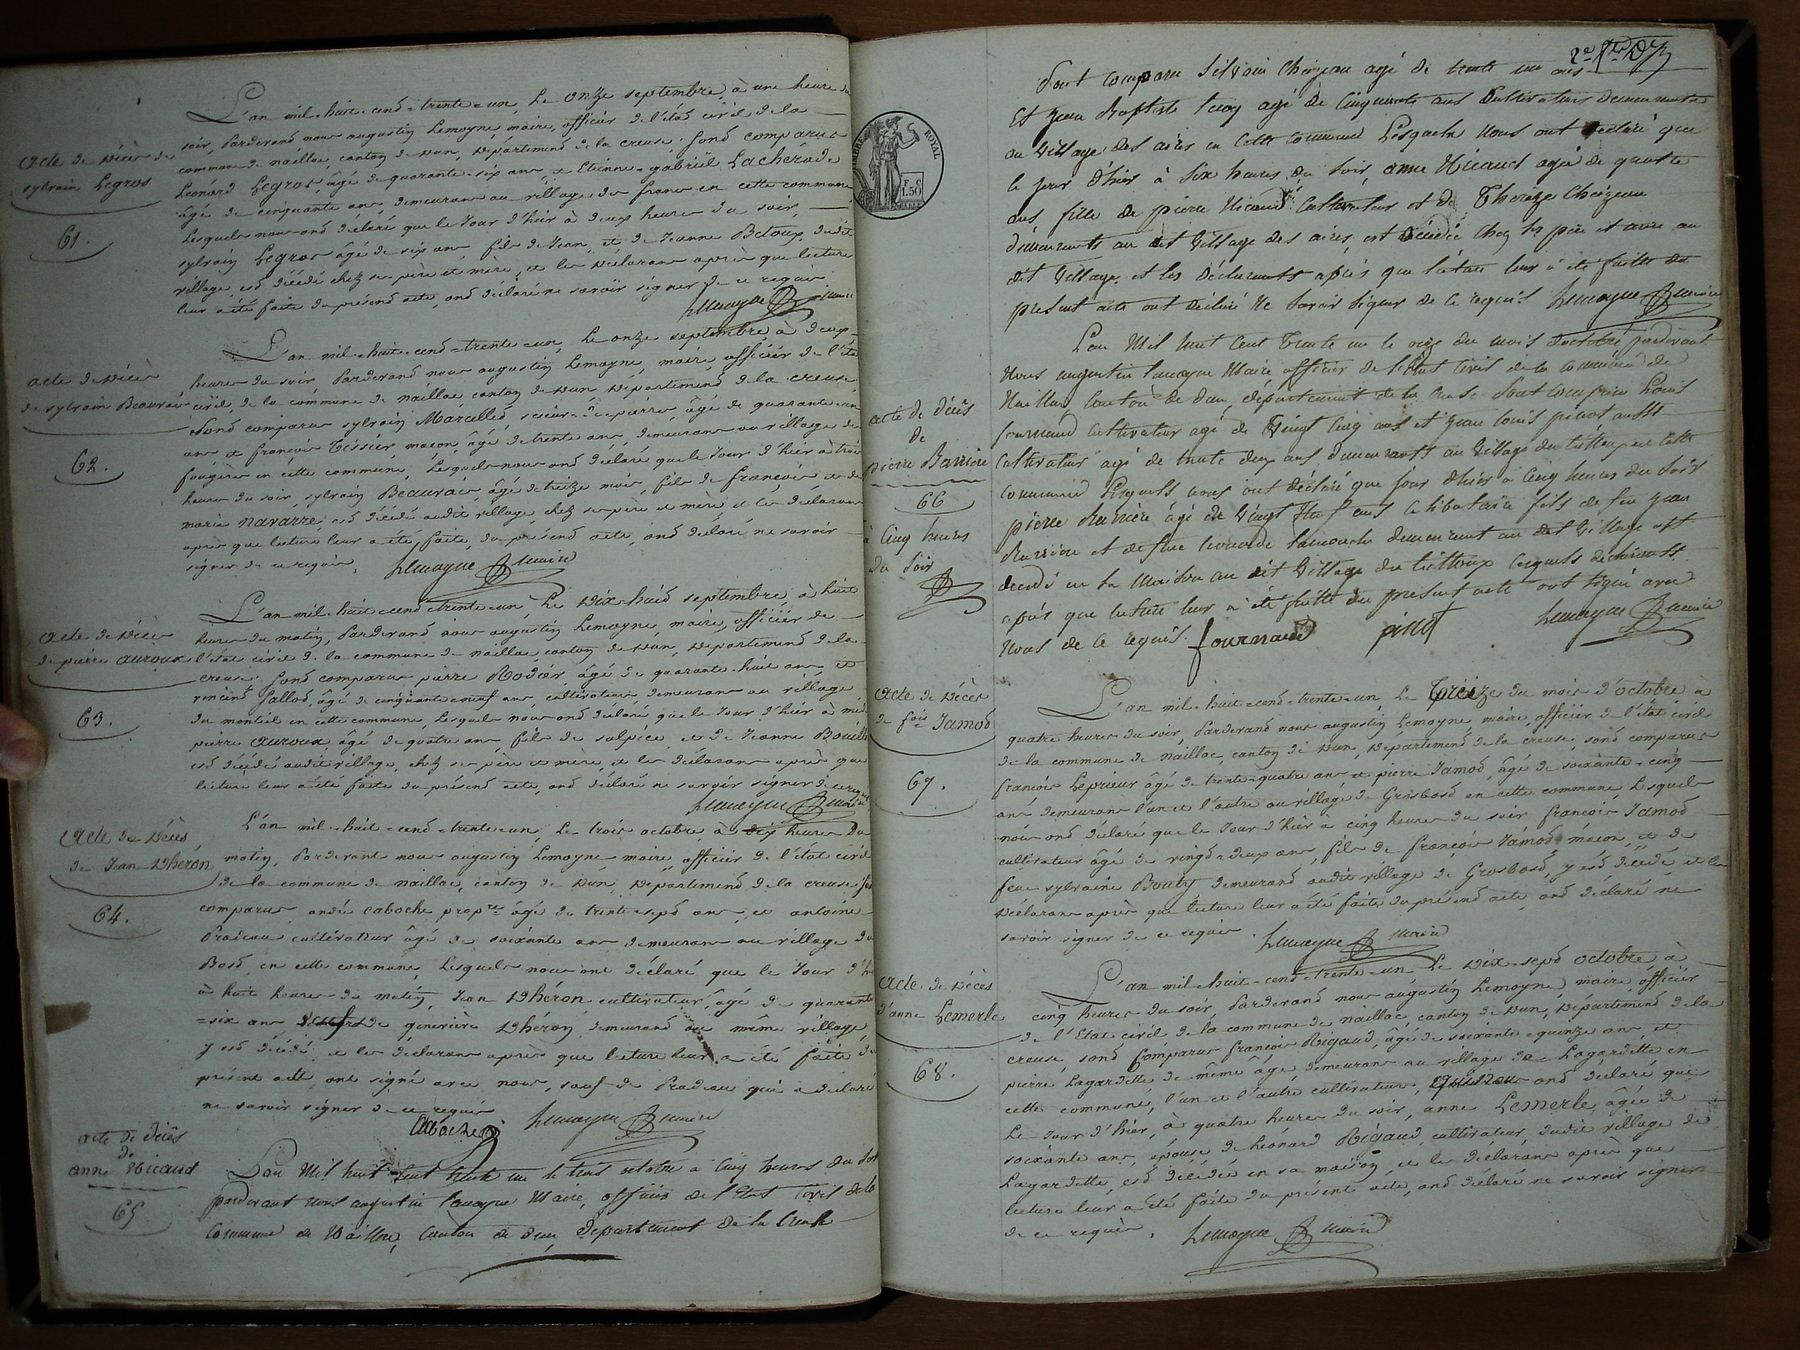 L'an mil-huit-cend-trente-un, Le onze septembre, à une heure du
soir, Pardevand nous augustin Lemoyne, maire, officier de l'état civil de la
commune de naillac, canton de Dun, département de la creuse, sond comparus
Léonard Legros, âgé de quarante-six ans, et Etienne-gabriel Lachérade
âgé de cinquante ans, demeurans au village du franc en cette commune
Lesquels nous ond déclaré que le Jour d'hier à deux heures du soir,
sylvain Legros âgé de six ans fils de Jean, et de Jeanne Betoux, dudit
village, esd décédé chez ses père et mère, et les déclarans après que lecture
leur a été faite du présend acte, ond déclaré ne savoir signer de ce requis
Lemoyne maire
acte de décès de
sylvain Legros
61.
L'an mil-huit-cend-trente-un, Le onze septembre, à deux
heures du soir, Pardevand nous augustin Lemoyne, maire, officier de l'état
civil, de la commune de naillac canton de Dun, département de la creuse
sond comparus sylvain Marcelled, scieur de pierre, âgé de quarante-un
ans et françois Tissier maçon, âgé de trente ans, demeurans au village de
fougères en cette commune, Lesquels nous ond déclaré que le Jour d'hier à trois
heures du soir, sylvain Beauvais âgé de treize mois, fils de françois et de
marie navarre, esd décédé audit village chez ses père et mère et les déclarans
après que lecture leur a été faite, du présend acte, ond déclaré ne savoir
signer de ce requis, Lemoyne maire
acte de décès
de sylvain Beauvais
62.
L'an mil-huit-cend-trente-un Le dix-huid septembre à huit
heures du matin, Pardevand nous augustin Lemoyne, maire, officier de
l'état civil de la commune de naillac canton de Dun, département de la
creuse, sond comparus pierre Rodier âgé de quarante-huit ans et
vincend Sallod, âgé de cinquante-neuf ans, cultivateurs, demeurans au village
du monteil en cette commune, Lesquels nous ond déclaré que le Jour d'hier à midi
pierre auroux, âgé de quatre ans, fils de sulpice et de Jeanne
esd décédé audit village, chez ses père et mère, et les déclarans après que
lecture leur a été faite du présend acte, ond déclaré ne savoir signer de ce requis
Lemoyne maire
acte de décès
de pierre auroux
63.
L'an mil-huit-cend-trente-un, Le trois octobre, à dix heures du
matin, Pardevant nous augustin Lemoyne maire officier de l'état civil
de la commune de naillac, canton de Dun, département de la creuse
comparus andré caboche propre âgé de trente-sepd ans, et antoine
Pradeau cultivateur âgé de soixante ans demeurans au village du
Bosd, en cette commune, Lesquels nous ont déclaré que le Jour d'hier
à huit heures du matin, Jean Dhéron cultivateur, âgé de quarante
=six ans de geneviève Dhéron, demeurand au même village
y esd décédé, et les déclarans après que lecture leur a été faite du
présent acte, ont signé avec nous, sauf de Pradeau qui a déclaré
ne savoir signer de ce requis
Caboche Lemoyne maire
acte de décès
de Jean Dhéron
64.
Lan Mil huit cent trente un le trois octobre a cinq heures du soir
pardevant nous augustin Lemoyne Maire, officier de l'Etat Civil de la
Commune de Naillac, Canton de Dun, departement de la Creuse
acte de décès
de
anne Nicaud
65
2e
TIMBRE ROYAL
1.50
Sont comparu Silvain Chezeau agé de trente un ans
Et Jean Baptiste agé de Cinquante ans Cultivateurs demeurants
au Village des aires en Cette Commune Lesquels Nous ont déclaré que
le jour d'hier à Six heures du Soir, anne Nicaud agée de quatre
ans fille de pierre Nicaud Cultivateur et de Thereze Chezeau
demeurants au dit Village des aires, est décédée Chez Ses père et mère au
dit Village, et les déclarants après que lecture leur à été faitte du
present acte ont déclaré Ne Savoir Signer de Ce requis Lemoyne maire
Lan Mil huit Cent Trente un le onze du mois d'octobre pardevant
Nous augustin Lemoyne Maire officier de létat Civil de la commune de
Naillac Canton de Dun, département de la Creuse Sont comparu Louis
fournaud Cultivateur agé de Vingt Cinq ans et Jean Louis pinot aussi
Cultivateur agé de trente deux ans demeurants au Village du en Cette
commune Lesquels nous ont déclaré que jour d'hier à Cinq heures du Soir
pierre Barrière âgé de Vingt Neuf ans Célibataire fils de feu Jean
Barrière et de feue demeurant au dit Village est
décédé en Sa Maison au dit Village du Lesquels déclarants
après que lecture leur à été faitte du present acte ont Signé avec
Nous de Ce requis fournaud pinot Lemoyne maire
acte de décès
de
pierre Barrière
66
à Cinq heures
du Soir
L'an mil-huit-cend-trente-un, Le Treize du mois d'octobre à
quatre heures du soir, Pardevand nous augustin Lemoyne, maire, officier de l'état civil
de la commune de naillac, canton de Dun, département de la creuse, sond comparus
françois Leprieur âgé de trente-quatre ans et pierre Jamod, âgé de soixante-cinq
ans demeurans l'un et l'autre au village de Grosbosd en cette commune Lesquels
nous ond déclaré que le Jour d'hier à cinq heures du soir françois Jamod
cultivateur âgé de vingd-deux ans, fils de françois Jamod, maçon, et de
feue sylvaine Bouty demeurand audit village de Grosbosd, y esd décédé et les
déclarans après que lecture leur a été faite du présend acte ond déclaré ne
savoir signer de ce requis. Lemoyne maire
acte de décès
de fois Jamod
67.
L'an mil-huit-cend-trente-un Le dix-sepd octobre, à
cinq heures du soir, Pardevand nous augustin Lemoyne, maire, officier
de l'Etat civil de la commune de naillac, canton de Dun, département de la
creuse, sond comparus françois Rigaud, âgé de soixante-quinze ans et
pierre Lagardette de même âge demeurans au village de Lagardette en
cette commune, l'un et l'autre cultivateurs, Lesquels nous ond déclaré que
Le Jour d'hier, à quatre heures du soir, anne Lemerle, âgée de
soixante ans, épouse de Leonard Rigaud, cultivateur, dudit village de
Lagardette, esd décédée en sa maison, et les déclarans après que
lecture leur a été faite du présent acte, ond déclaré ne savoir signer
de ce requis, Lemoyne maire
acte de décès
d'anne Lemerle
68.